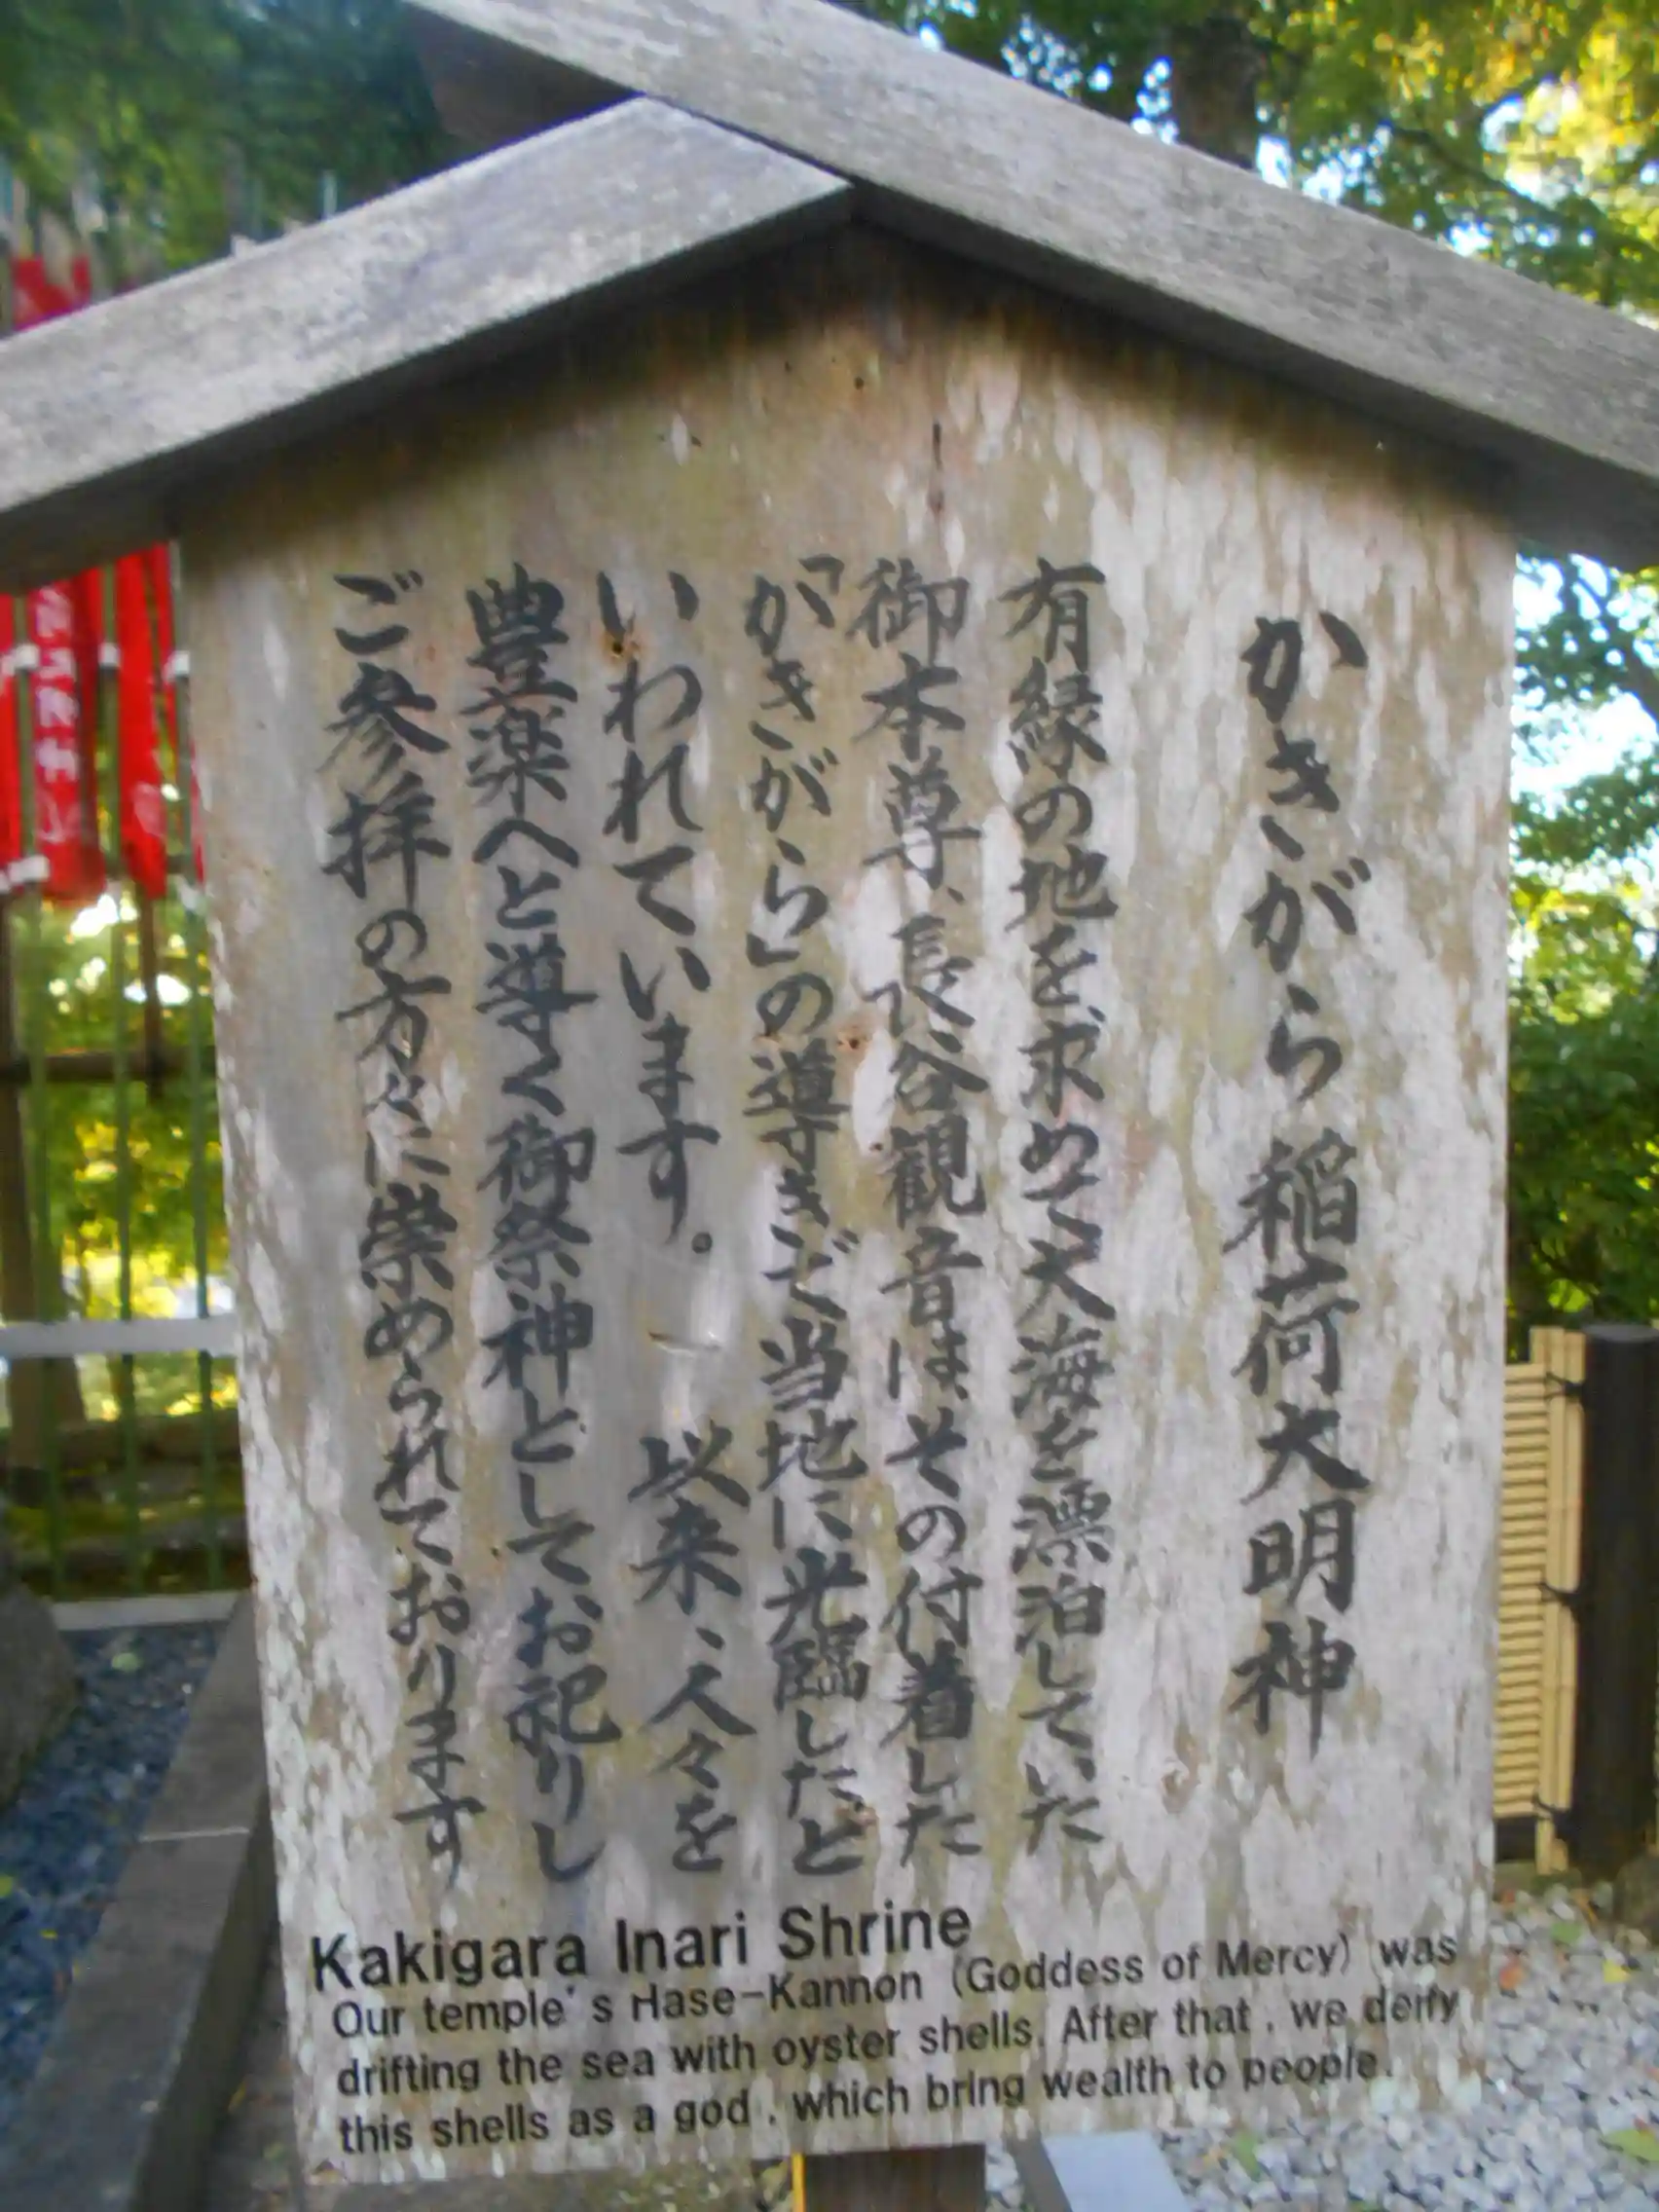 かきがら稲荷大明神
有縁の地を求めて大海を漂泊していた
御本尊、長谷観音は、その付着した
「かきがら」の導きでご当地に光臨したと
いわれています。 以来、人々を
豊楽へと導く御祭神としてお祀りし
ご参拝の方々に崇められております
Kakigara Inari Shrine
Our temple's Hase-Kannon (Goddess of Mercy) was
drifting the sea with oyster shells. After that, we deify
this shells as a god, which bring wealth to people.